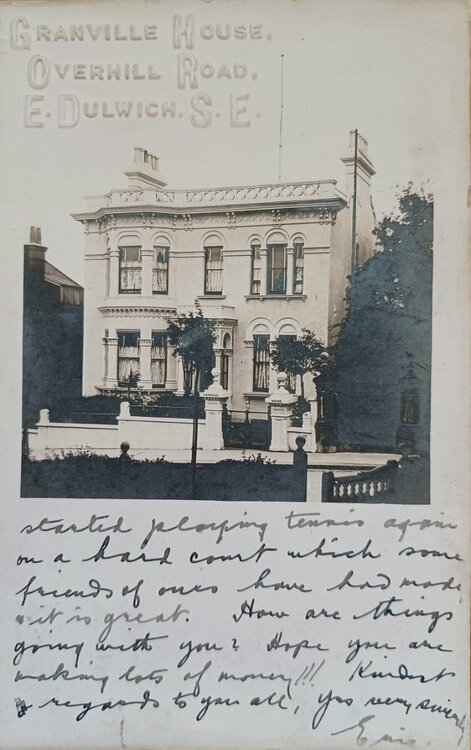 GRANVILLE HOUSE,
OVERHILL ROAD,
E. DULWICH. S. E.
started playing tennis again
on a hard court which some
friends of ours have had made,
it is great. How are things
going with you? Hope you are
making lots of money!!! Kindest
regards to you all, yrs very
Eric